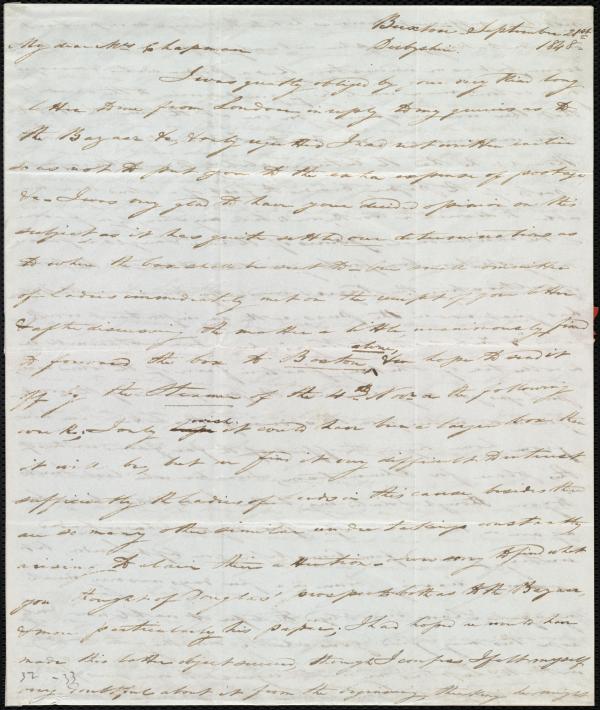 Buxton September 21st
Derbyshire 1848-
My dear Mrs Chapman
I was greatly obliged by your very kind long
letter done from London, in reply to my queries as to
the Bazaar &c, & only regretted I had not written earlier
so as not to put you to the extra expense of postage
&c - I was very glad to have your decided opinion on this
subject, as it has quite settled our determination as
to where the box should be sent to - our small committee
of Ladies immediately met on the receipt of your letter
& after discussing the matter a little unanimously fixed
to forward the box to Boston, alone, & we hope to send it
off by the Steamer of the 4th Novr or the following
week; I only wish it could have been a larger box than
it will be, but we find it very difficult to interest
sufficiently the Ladies of Leeds in this cause, besides there
are so many other similar undertakings constantly
arising to claim their attention - I was sorry to find what
you thought of Douglas' prospects both as to the Bazaar
& more particularly his paper; I had hoped we were to have
made this latter object succeed though I confess I felt myself
very doubtful about it from the beginning, thinking he might
32 - 33